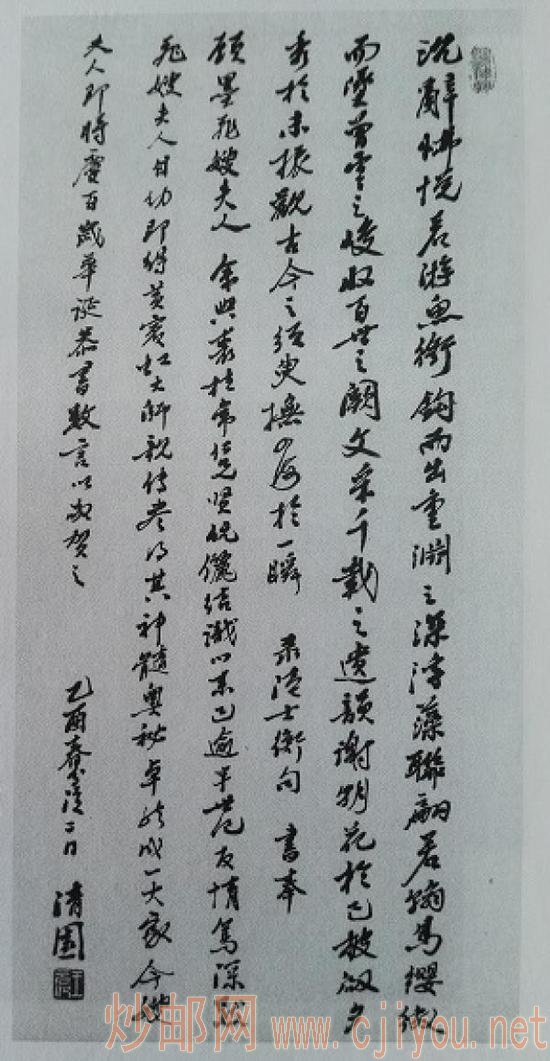 沈辭怫悅若游魚銜鉤而出重淵之深浮藻聯翩若翰鳥纓繳
而墜曾雲之峻收百世之闕文采千載之遺韻謝朝花於已披啟夕
秀於未振觀古今之須臾撫四海於一瞬 录陸士衡句 書奉
顾墨飛嫂夫人 余與裘柱常兄賢伉儷结識以来已逾半世纪友情篤深
飛嫂夫人自幼即得黄賓虹大师親传尽得其神髓奥秘卓然成一大家今嫂
夫人即将慶百歲華诞恭書数言以为贺之
乙酉春分後二日 清園
炒邮网 www.cjiyou.net